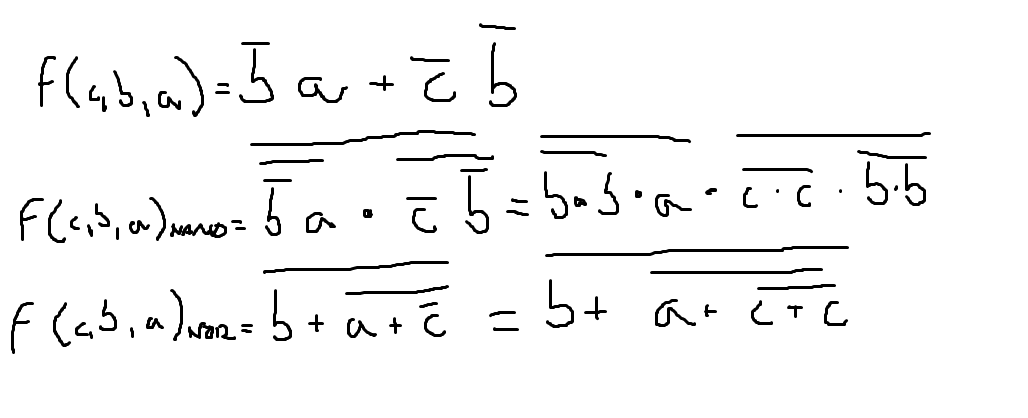 F(c,b,a)= b̅ a + c̅ b̅
F(c,b,a)NAND= \overline{\overline{b̅ a} · \overline{c̅ b̅}} = \overline{\overline{b·b}·a} · \overline{\overline{c·c}·\overline{b·b}}
F(c,b,a)NOR= \overline{b + \overline{a + c̅}} = \overline{b + \overline{a + \overline{c+c}}}